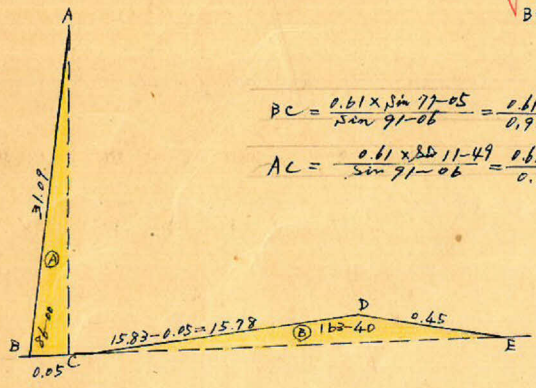 B
A
BC = 0.61 x Sin 77-05 / Sin 91-06 = 0.61 / 0.9
AC = 0.61 x Sin 11-49 / Sin 91-06 = 0.6 / 0.
31.09
A
86-00
B
0.05
C
15.83-0.05=15.78
D
B 163-40
0.45
E